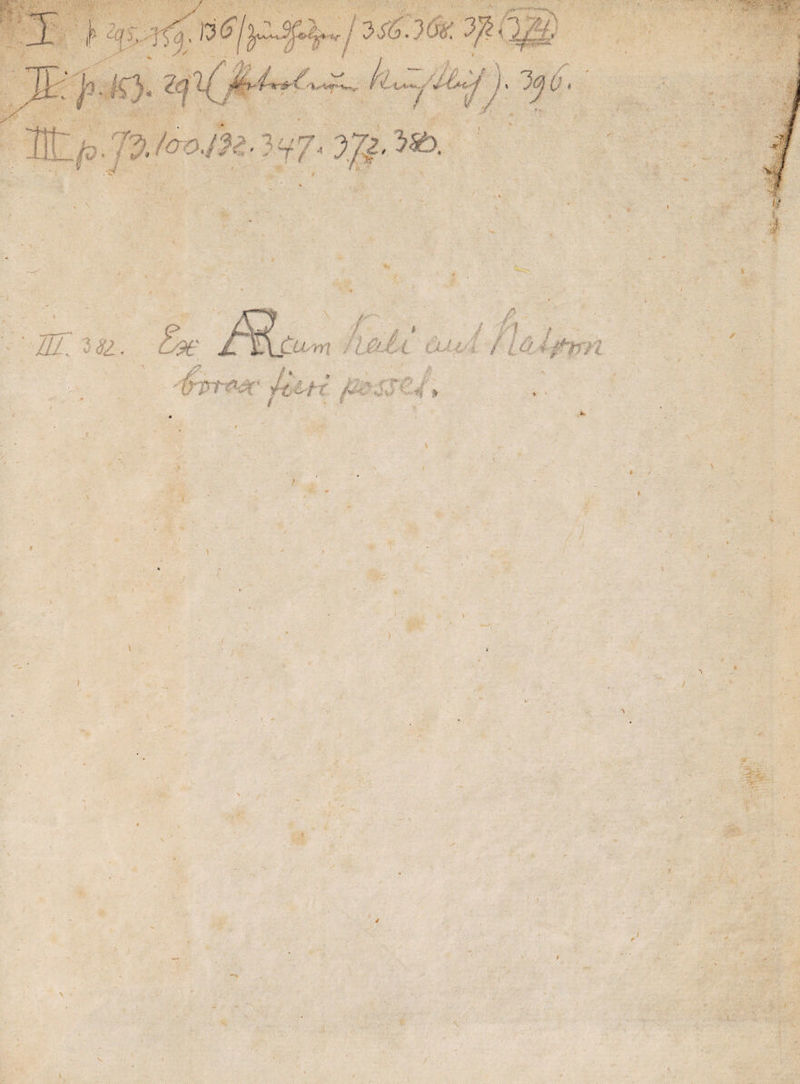 I p 295. 359. 136 / Zündhölzer / 356. 368. 372 (374)
II. p. 153. 292 (Petroleum künstlich). 396.
III p. 73. 100. 132. 347. 372. 380.
III. 382. Ex cum kali aut
borax fieri posset.